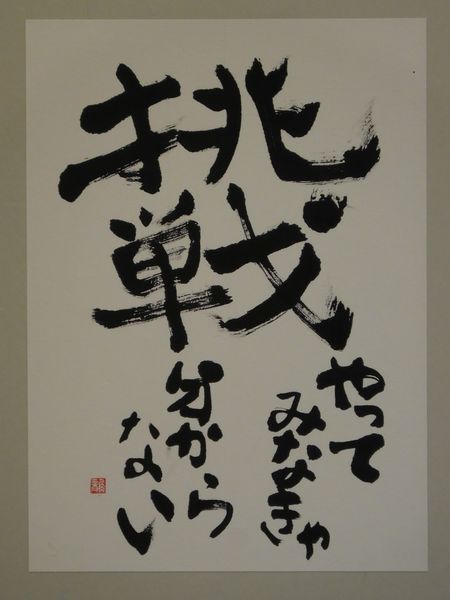 挑戦
やって
みなきゃ
分から
ない